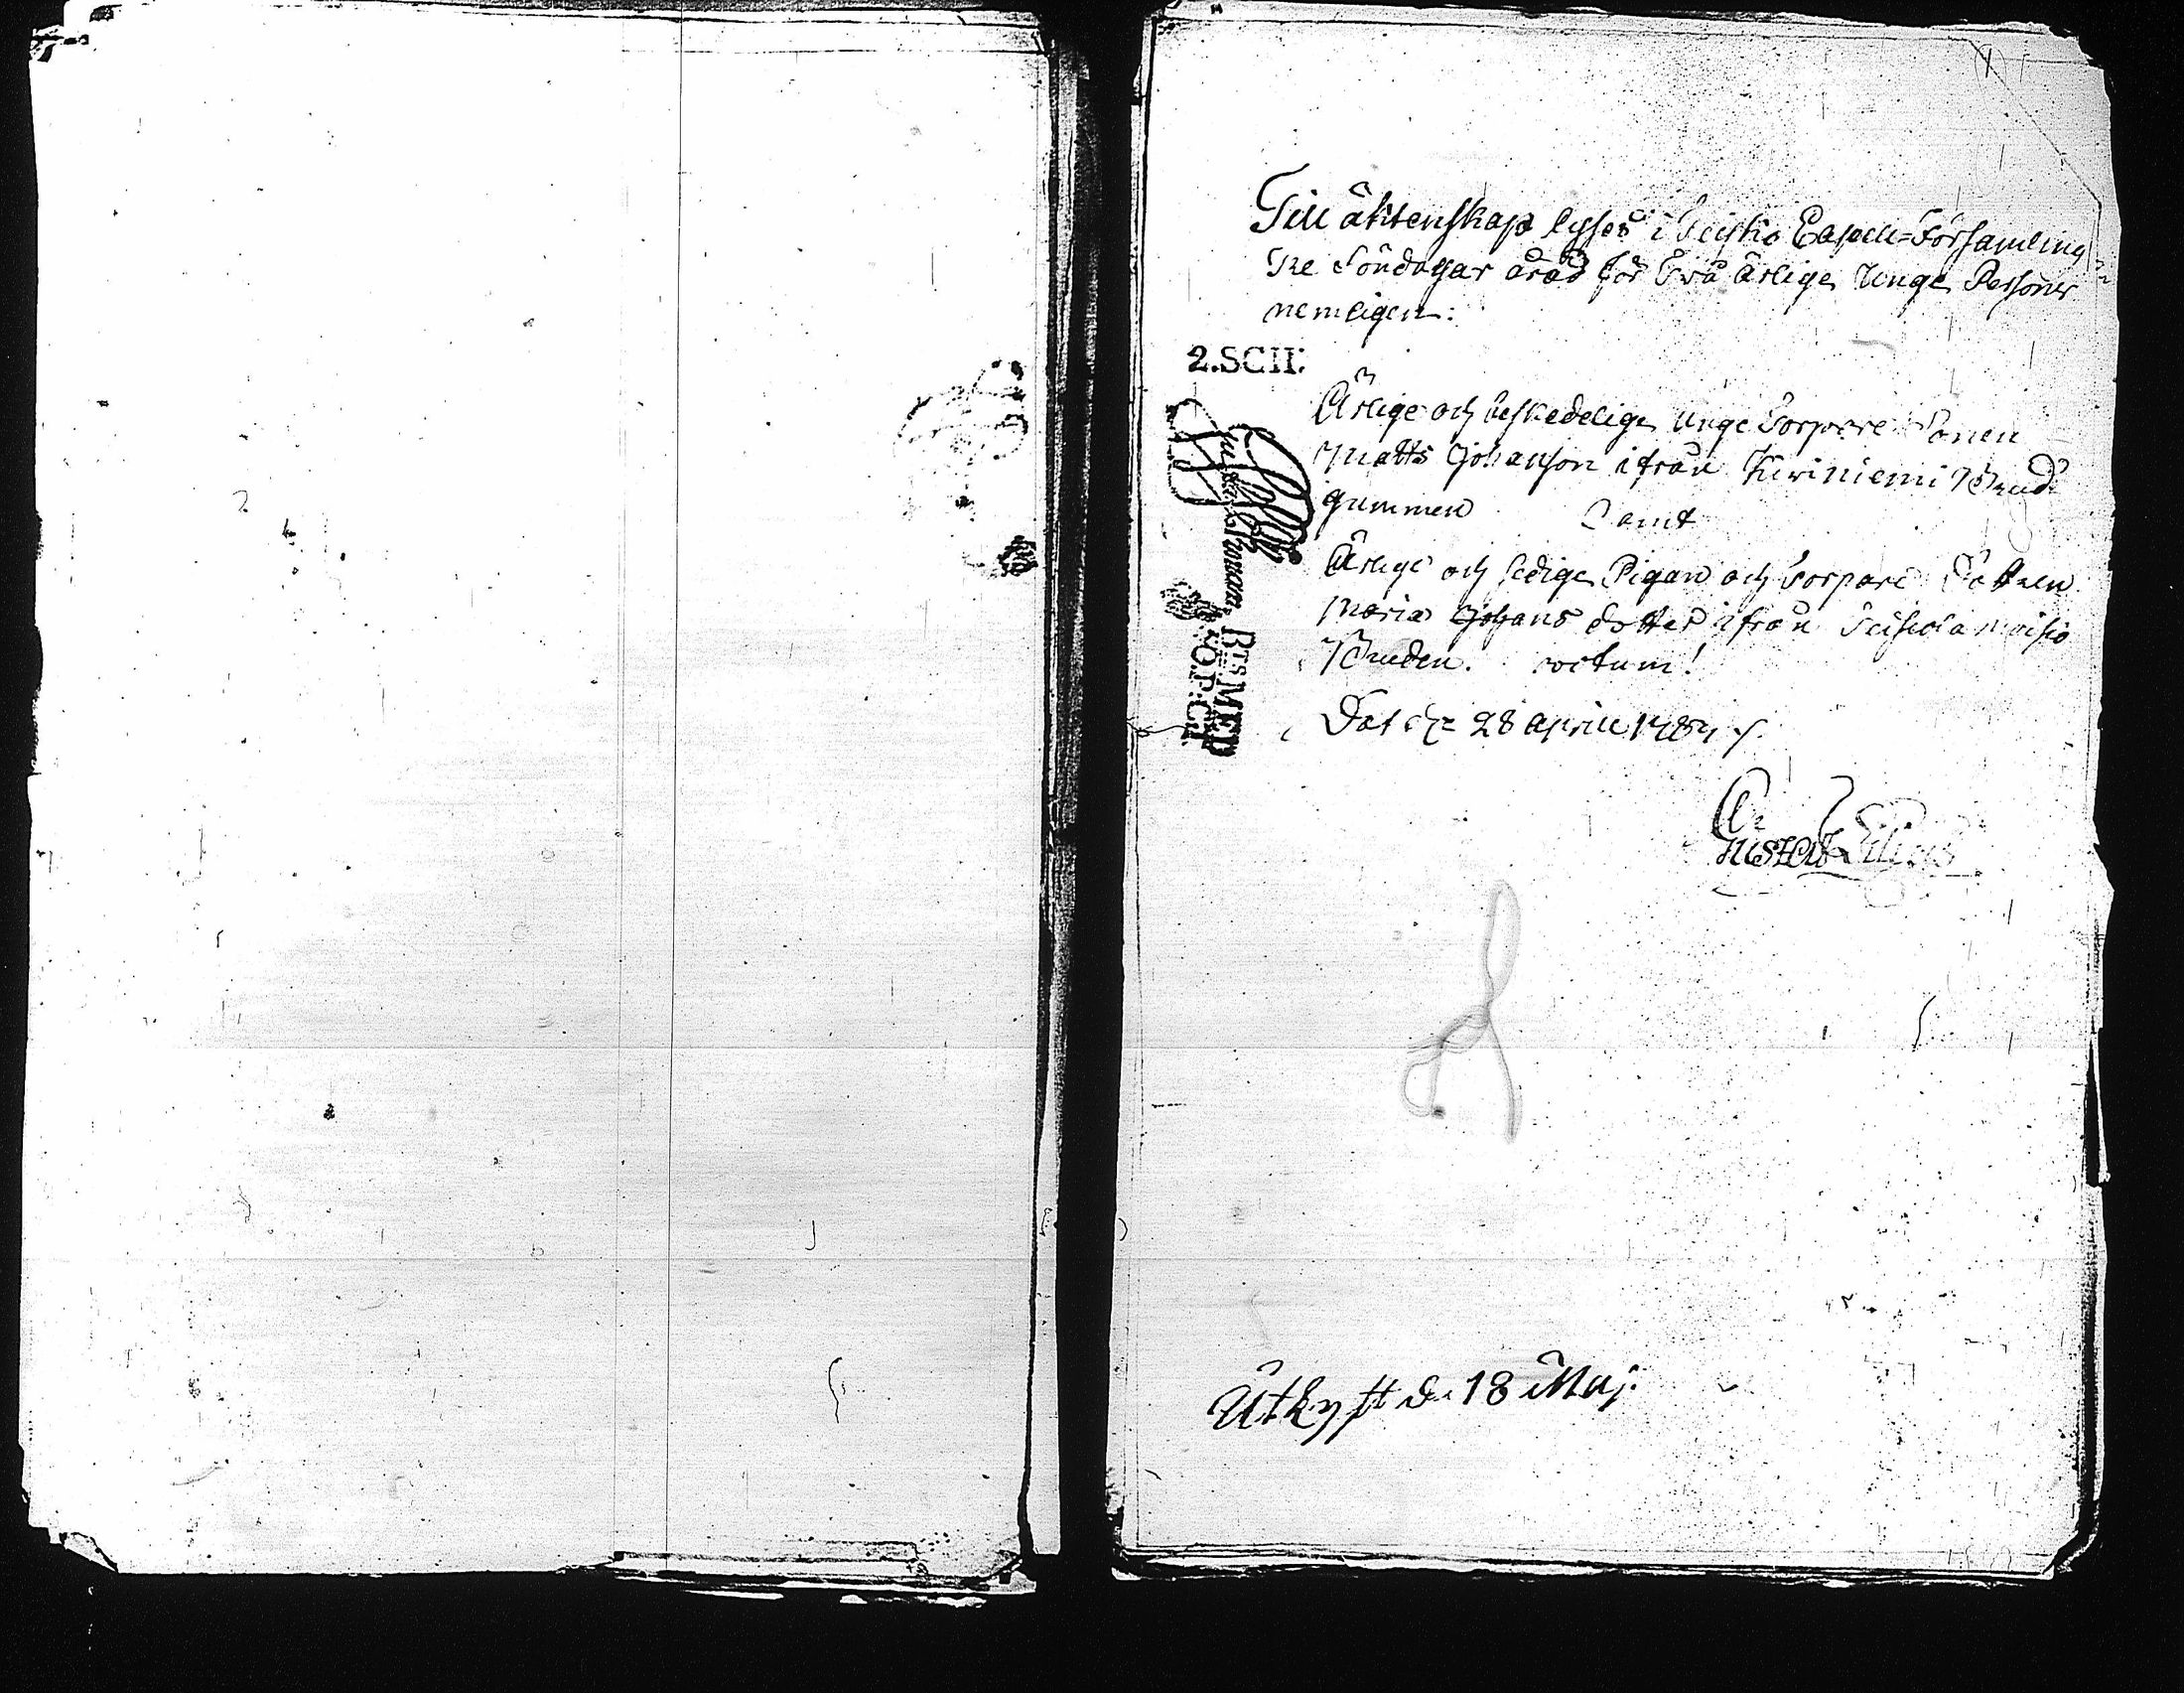 Till äktenskap lyses i Teisko Capell-Församling
Tre Söndagar å rad för två ärlige Unge Personer
nemligen:
2.SCH:
Ärlige och beskedelige Unge Torpare Sonen
Matts Johanson ifrån Kiwiniemi Brud
gummen Samt
Ärlige och Sedige Pigan och Torpare Dottren
Maria Johans dotter ifrån Teiskola moisio
Bruden. votum!
Dat: d: 28 aprill
Gustaf
BTS MED
Utlyst d. 18 Maj.